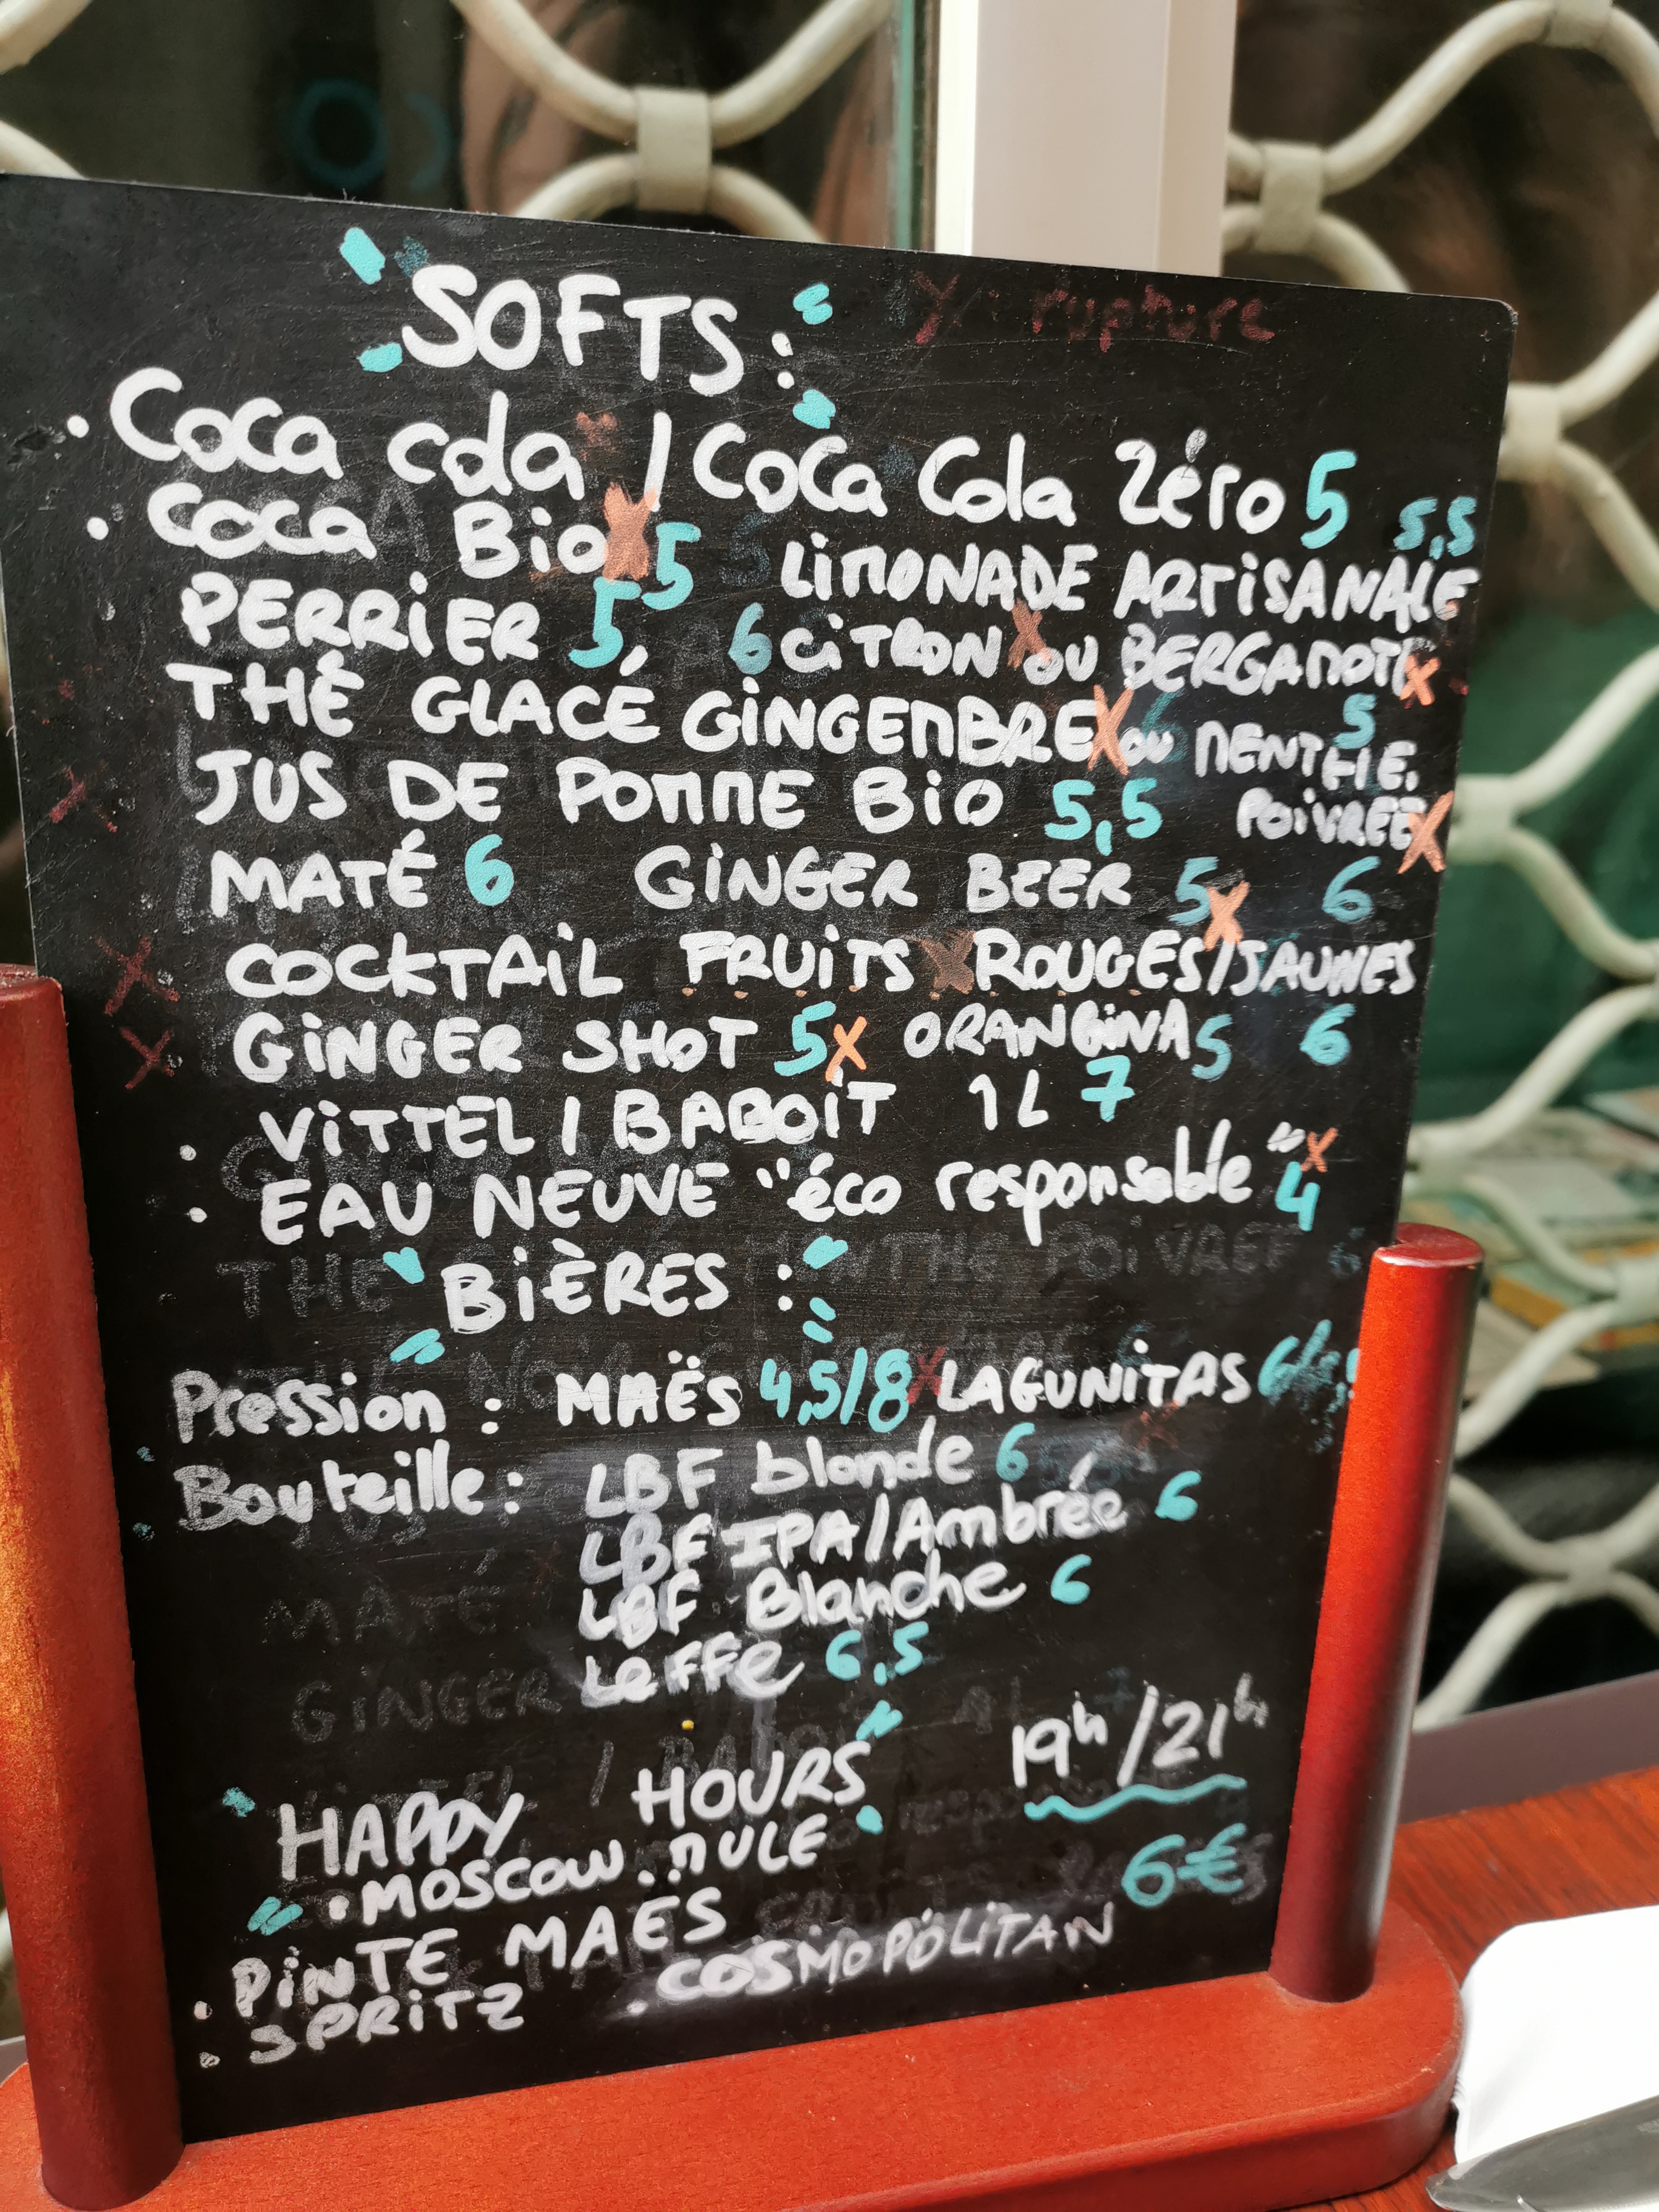 SOFTS : X : rupture
. Coca cola X / Coca Cola Zéro 5
. Coca Bio X 5 LIMONADE ARTISANALE 5,5
PERRIER 5 6 CITRON X OU BERGAMOTE X
THÉ GLACÉ GINGEMBRE X ou MENTHE. 5
JUS DE POMME BIO 5,5 POIVRÉE X
MATÉ 6 GINGER BEER 5 X 6
X COCKTAIL FRUITS X ROUGES/JAUNES
X GINGER SHOT 5 X ORANGINA 5 6
. VITTEL / BADOIT 1L 7
. EAU NEUVE "éco responsable" X 4
BIÈRES :
Pression : MAËS 4,5/8 X LAGUNITAS
Bouteille : LBF blonde 6
LBF IPA/Ambrée 6
LBF Blanche 6
Leffe 6,5
HAPPY HOURS 19h/21h
. MOSCOW MULE 6€
. PINTE MAËS
. SPRITZ . COSMOPOLITAN